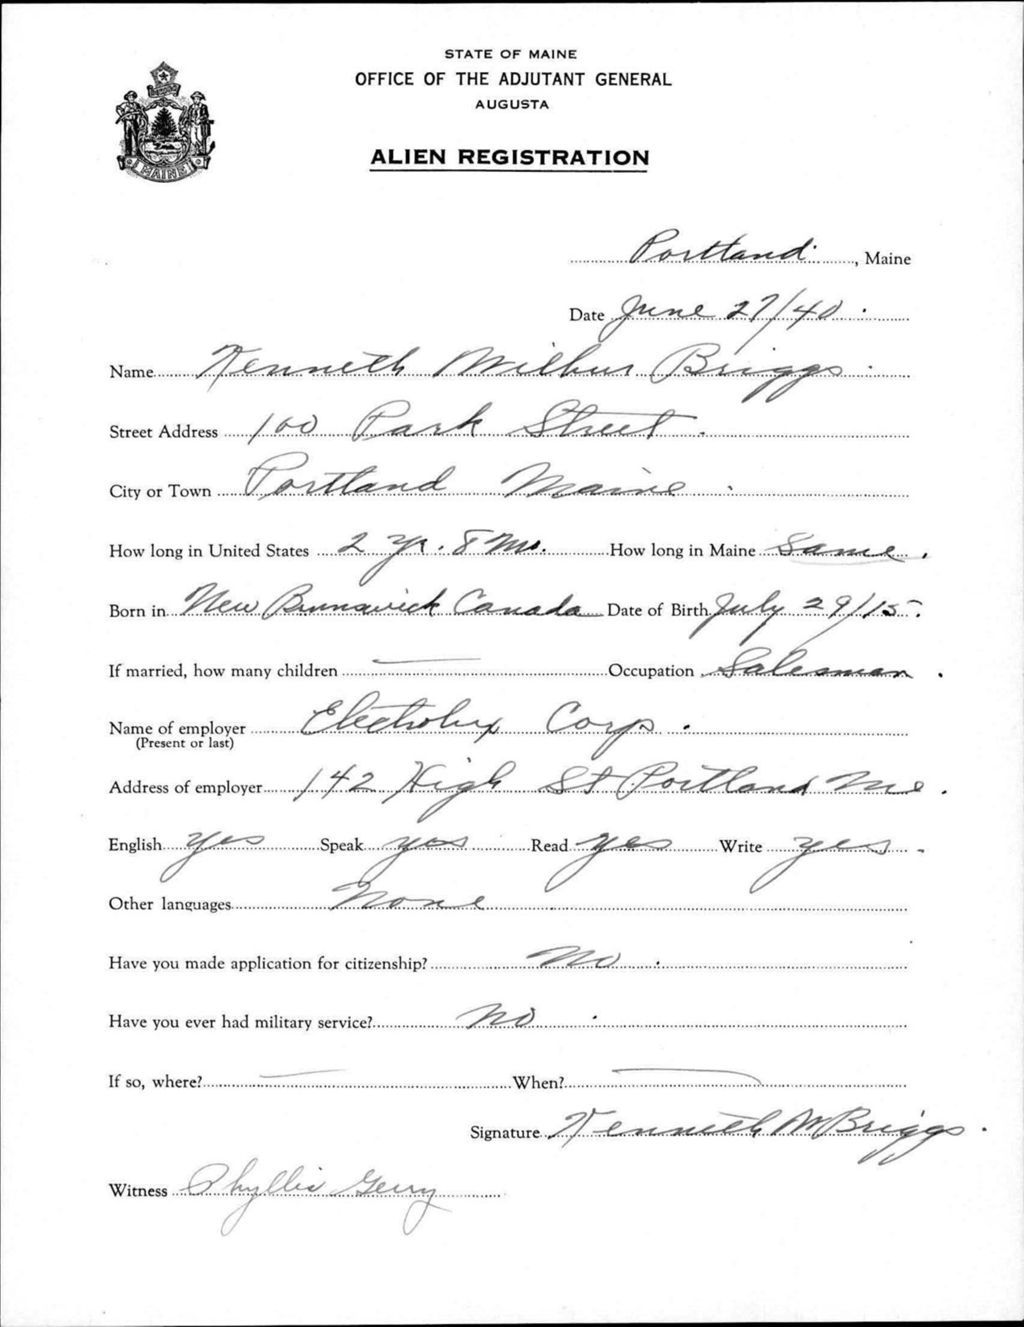 STATE OF MAINE
OFFICE OF THE ADJUTANT GENERAL
AUGUSTA
ALIEN REGISTRATION
MAINE
Portland, Maine
Date June 27/40.
Name Kenneth Wilbur Briggs.
Street Address 100 Park Street.
City or Town Portland Maine.
How long in United States 2 Yr. 8 Mo. How long in Maine Same.
Born in New Brunswick Canada Date of Birth July 29/15.
If married, how many children — Occupation Salesman.
Name of employer Electrolux Corp.
(Present or last)
Address of employer 142 High St Portland Me.
English yes Speak yes Read yes Write yes.
Other languages None.
Have you made application for citizenship? No.
Have you ever had military service? No.
If so, where? — When? —
Signature Kenneth W Briggs.
Witness Phyllis Gerry